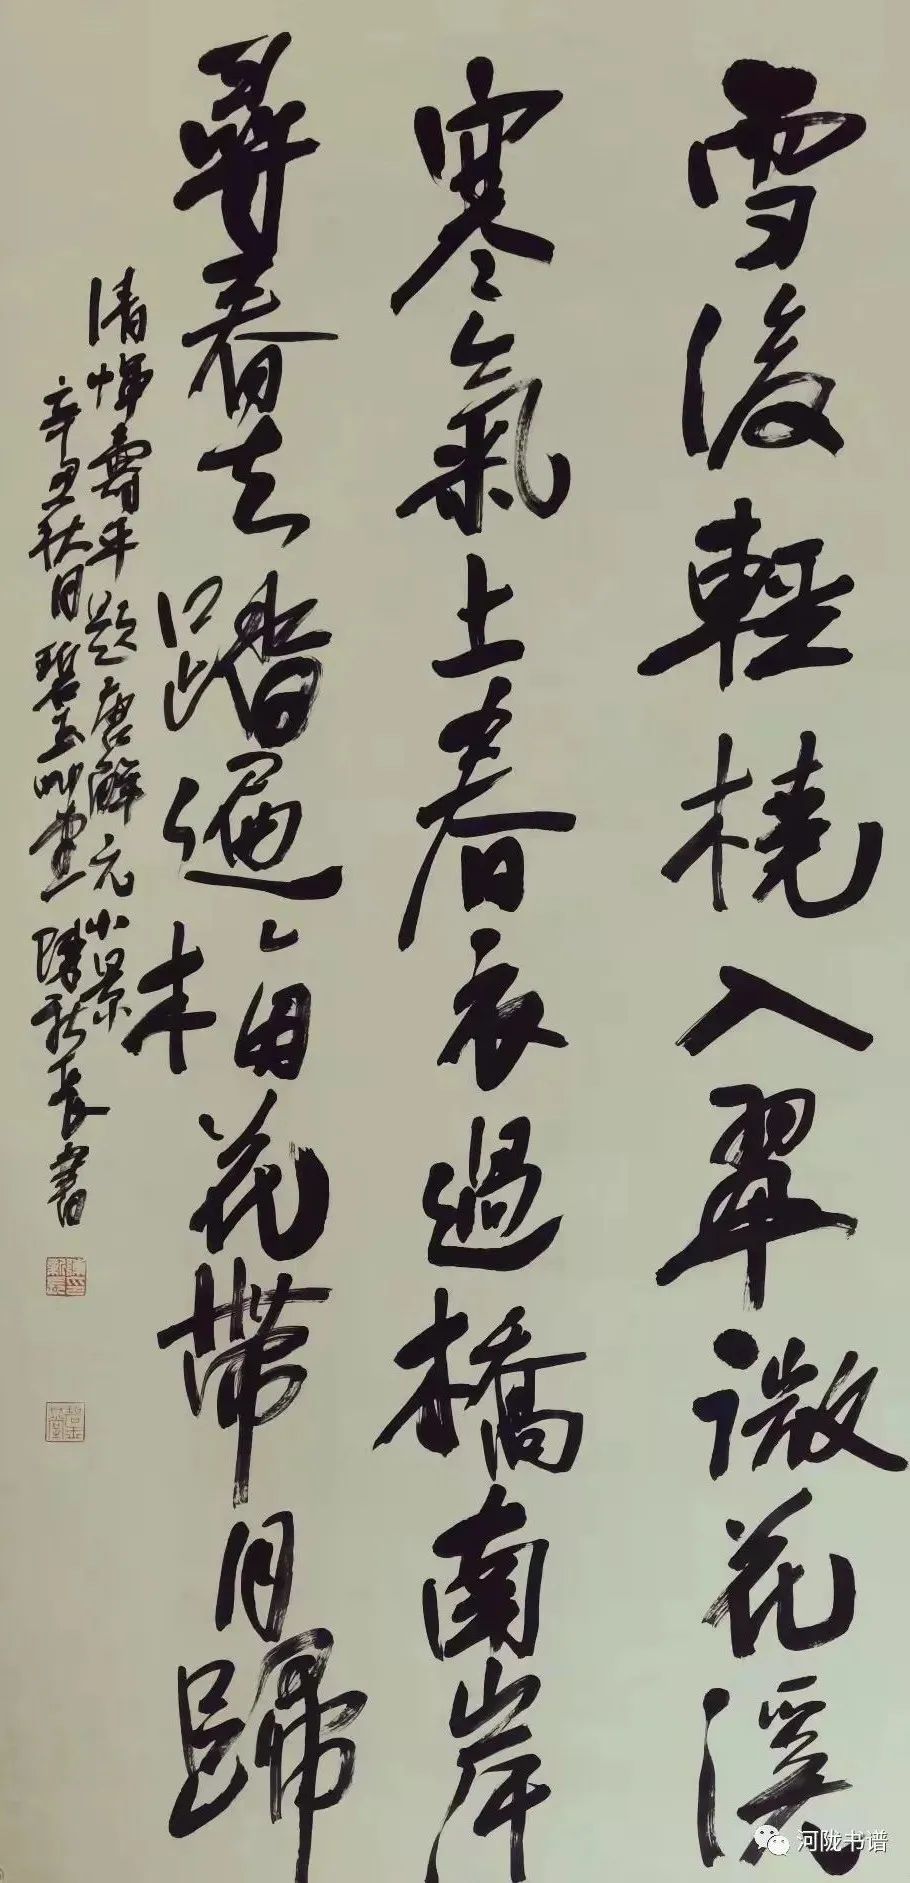 雪後輕橈入翠微花溪
寒氣上春衣過橋南岸
尋春去踏遍梅花帶月歸
清惲壽平題唐解元小景
辛丑秋日碧玉艸堂陳新長書
河陇书谱